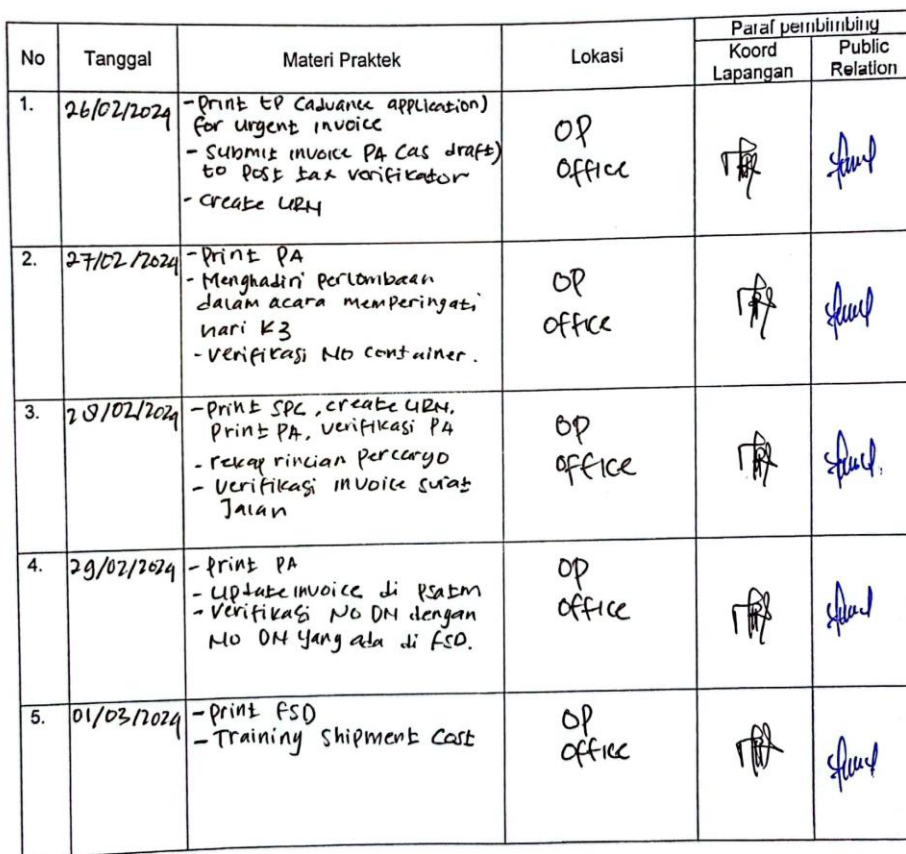 No Tanggal Materi Praktek Lokasi Paraf pembimbing
Koord Lapangan Public Relation
1. 26/02/2024 -Print EP (advance application) OP
for urgent invoice Office
- Submit invoice PA (as draft)
to post tax verifikator
- create URN
2. 27/02/2024 -Print PA OP
- Menghadiri perlombaan Office
dalam acara memperingati
hari K3
- Verifikasi No container.
3. 28/02/2024 -Print SPC, create URN, OP
Print PA, verifikasi PA Office
- rekap rincian percargo
- Verifikasi invoice surat
Jalan
4. 29/02/2024 -Print PA OP
- Update invoice di Psatm Office
- Verifikasi No DN dengan
No DN yang ada di FSD.
5. 01/03/2024 -Print FSD OP
- Training Shipment Cost Office